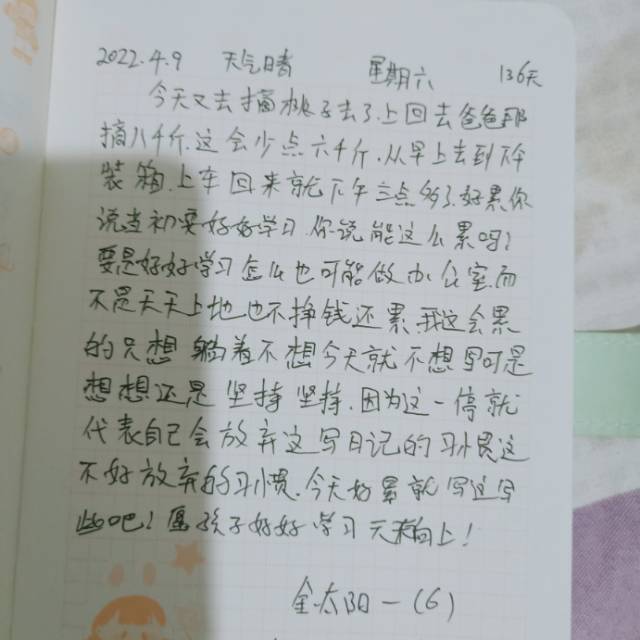 2022.4.9 天气晴 星期六 136天
今天又去摘桃子去了上回去爸爸那
摘八千斤.这会少点六千斤.从早上去到下午
装箱.上车回来就下午三点多了.好累你
说当初要好好学习你说能这么累吗?
要是好好学习怎么也可能做办公室.而
不是天天上地也不挣钱还累.我这会累
的只想躺着不想今天就不想写可是
想想还是坚持坚持.因为这一停就
代表自己会放弃这写日记的习惯这
不好放弃的习惯.今天好累就写这写
些吧!愿孩子好好学习天天向上!
金太阳一(6)